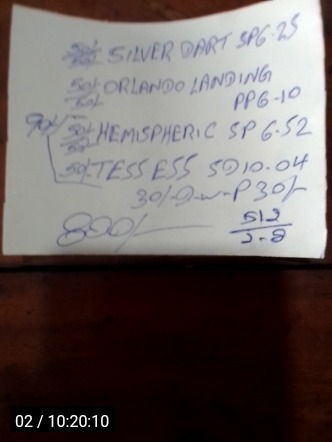 50/- 50/- SILVER DART SP6.25
50/- 50/- ORLANDO LANDING
PP6-10
90/- 50/- 50/- HEMISPHERIC SP 6.52
50/- TESS ESS SD10.04
30/- D-W-P 30/-
800/-
512
2-8
02 / 10:20:10